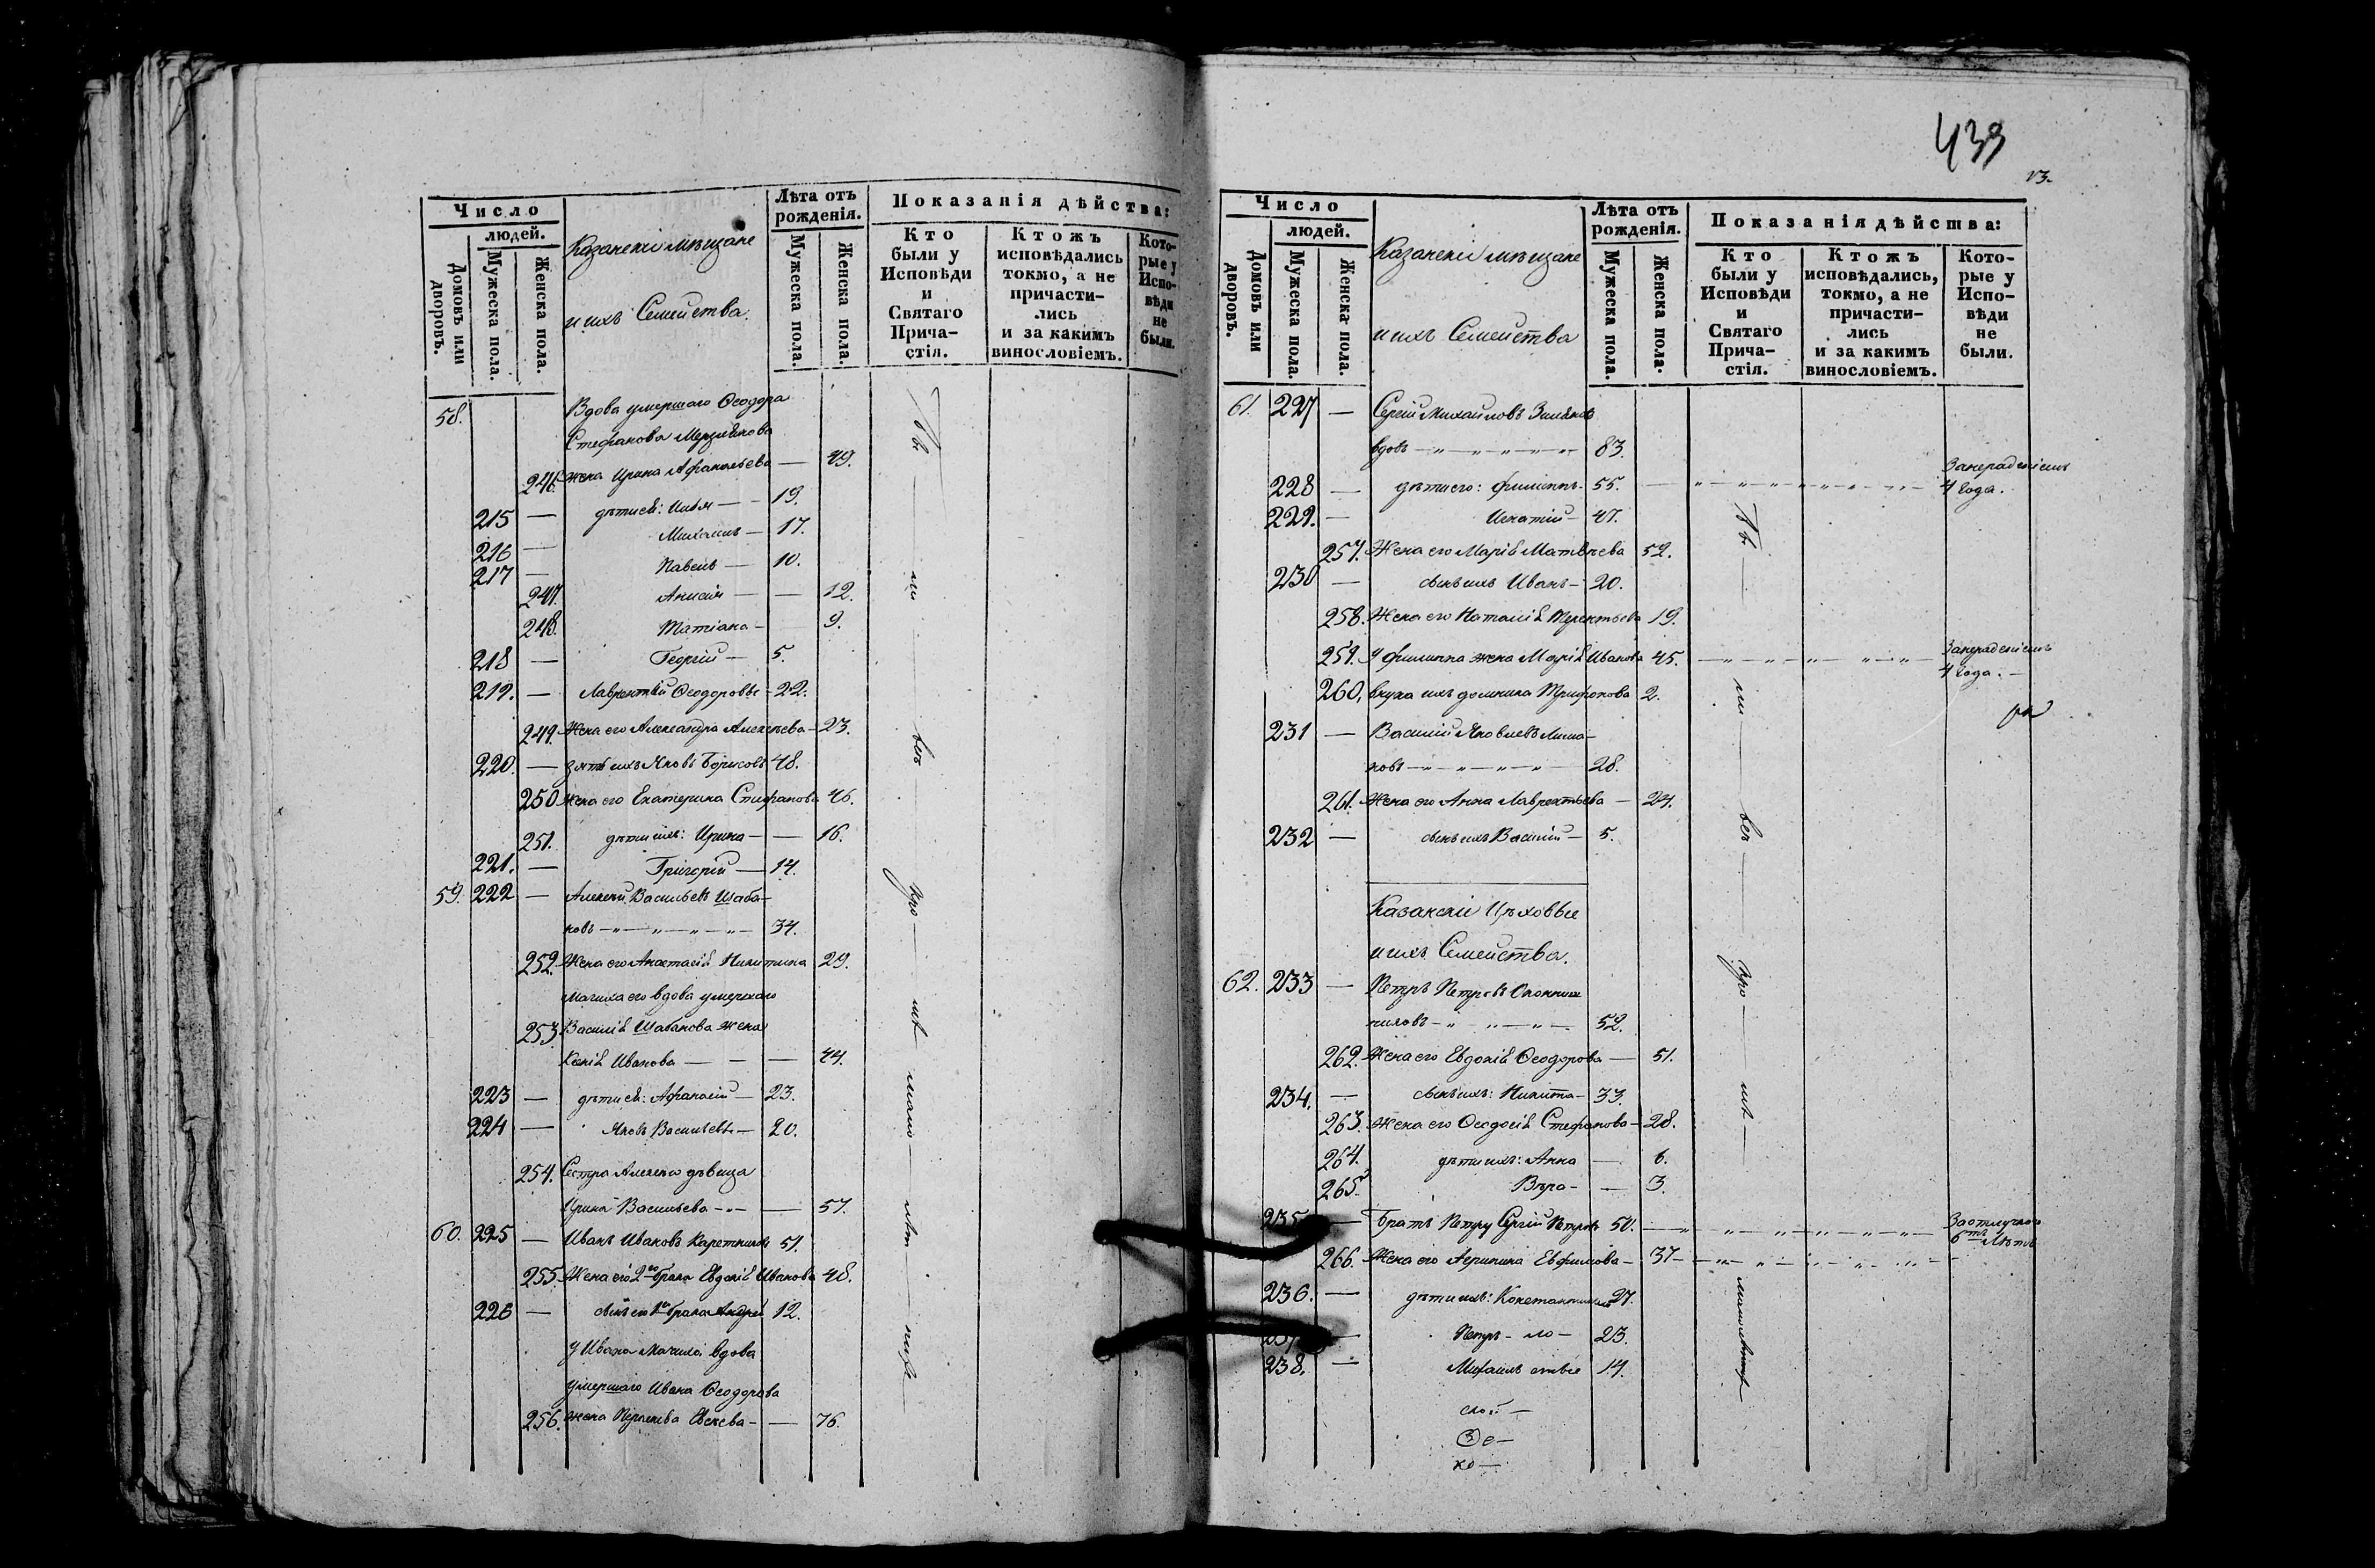 Число
людей.
Домовъ или дворовъ.
Мужеска пола.
Женска пола.
Казанскіе мѣщане
и ихъ Семейства.
Лѣта отъ рожденія.
Мужеска пола.
Женска пола.
Показанія дѣйства:
Кто были у Исповѣди и Святаго Прича-стія.
Ктожъ исповѣдались токмо, а не причасти-лись и за какимъ винословіемъ.
Кото-рые у Испо-вѣди не были.
58. Вдова умершаго Ѳеодора
Стефанова Мерзлякова
246. жена Ирина Афанасьева — 49.
215 — дѣти ея: Илья — 19.
216 — Михаилъ — 17.
217 — Павелъ — 10.
247. Анисія — — 12.
248. Татіана — 9.
218 — Георгій — 5.
219. — Лаврентій Ѳеодоровъ — 22.
249. Жена его Александра Алексѣева — 23.
220. — зять ихъ Яковъ Борисовъ 48.
250 Жена его Екатерина Стефанова 46.
251. дѣти ихъ: Ирина — — 16.
221. — Григорій — 14.
59. 222 — Алексѣй Васильевъ Шаба-
новъ — „ — „ — „ — „ — 34.
252. Жена его Анастасія Никитина 29.
Мачиха его вдова умершаго
253. Василія Шабанова жена
Ксенія Иванова — — — 44.
223 — дѣти ея: Афанасій — 23.
224 — Яковъ Васильевъ — 20.
254. Сестра Алексѣя дѣвица
Ирина Васильева — „ — — 57.
60. 225 — Иванъ Ивановъ Каретниковъ 51.
255. Жена его 2го брака Евдокія Иванова 48.
226 — сынъ его 1го брака Андрей 12.
У Ивана Мачиха вдова
умершаго Ивана Ѳеодорова
256. жена — — 76.
439
Число
людей.
Домовъ или дворовъ.
Мужеска пола.
Женска пола.
Казанскіе мѣщане
и ихъ Семейства
Лѣта отъ рожденія.
Мужеска пола.
Женска пола.
Показанія дѣйства:
Кто были у Исповѣди и Святаго Прича-стія.
Ктожъ исповѣдались, токмо, а не причасти-лись и за какимъ винословіемъ.
Кото-рые у Испо-вѣди не были.
61. 227 — Сергій Михаиловъ
вдовъ — „ — „ — „ — „ — 83.
228 — дѣти его: Филиппъ — 55. За нерадѣніемъ
4 года.
229. — Игнатій — 47.
257. Жена его Марія Матвѣева 52.
230 — сынъ ихъ Иванъ — 20.
258. Жена его Наталія Терентьева 19.
259. У Филиппа жена Марія Иванова 45. За нерадѣніемъ
4 года. —
260. внука ихъ Домника Трифонова 2.
231 — Василій Яковлевъ Лима-
новъ — „ — „ — „ — 28.
261. Жена его Анна Лаврентьева — 24.
232 — сынъ ихъ Василій — 5.
Казанскіе Цѣховые
и ихъ Семейства.
62. 233 — Петръ Петровъ
— „ — „ — „ — 52.
262. Жена его Евдокія Ѳеодорова — 51.
234. — сынъ ихъ: Никита — 33.
263. Жена его Ѳеодосія Стефанова — 28.
264. дѣти ихъ: Анна — 6.
265. Вѣра — — 3.
235 — Братъ Петру Сергій Петровъ 50. За отлучкою
6ть лѣтъ
266. Жена его Агрипина Евфимова — 37
236. — дѣти ихъ: Константинъ 27.
237 — Петръ — 23.
238. — Михаилъ 14.